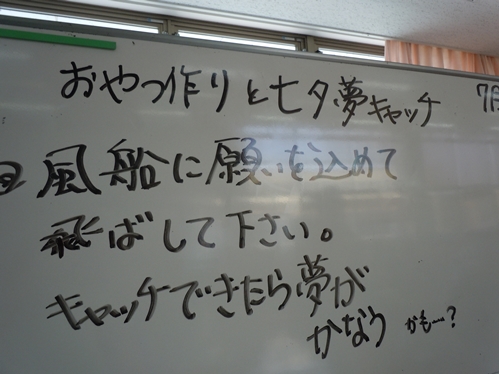 おやつ作りと七夕夢キャッチ 7月
風船に願いを込めて
飛ばして下さい。
キャッチできたら夢が
かなう かも…?